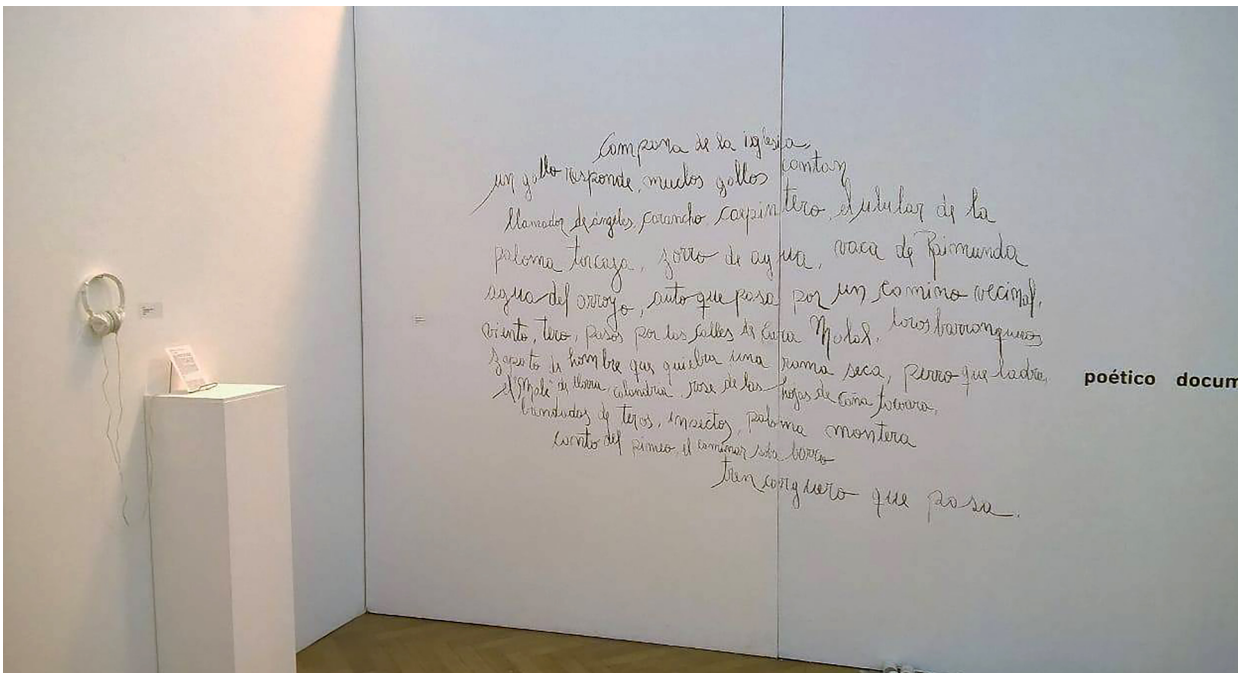 Campana de la iglesia,
un gallo responde, muchos gallos cantan
llamador de ángeles, carancho, carpintero, el ulular de la
paloma torcaza, zorro de agua, vaca de Raimunda
agua del arroyo, auto que pasa por un camino vecinal,
viento, tero, pasos por las calles de Cura Malal, loros barranqueros
zapato de hombre que quiebra una rama seca, perro que ladra,
el de calandria, rose de las hojas de caña tacuara,
bandadas de teros, insectos, paloma montera
canto del, el caminar sobre barro
tren carguero que pasa.
poético docum